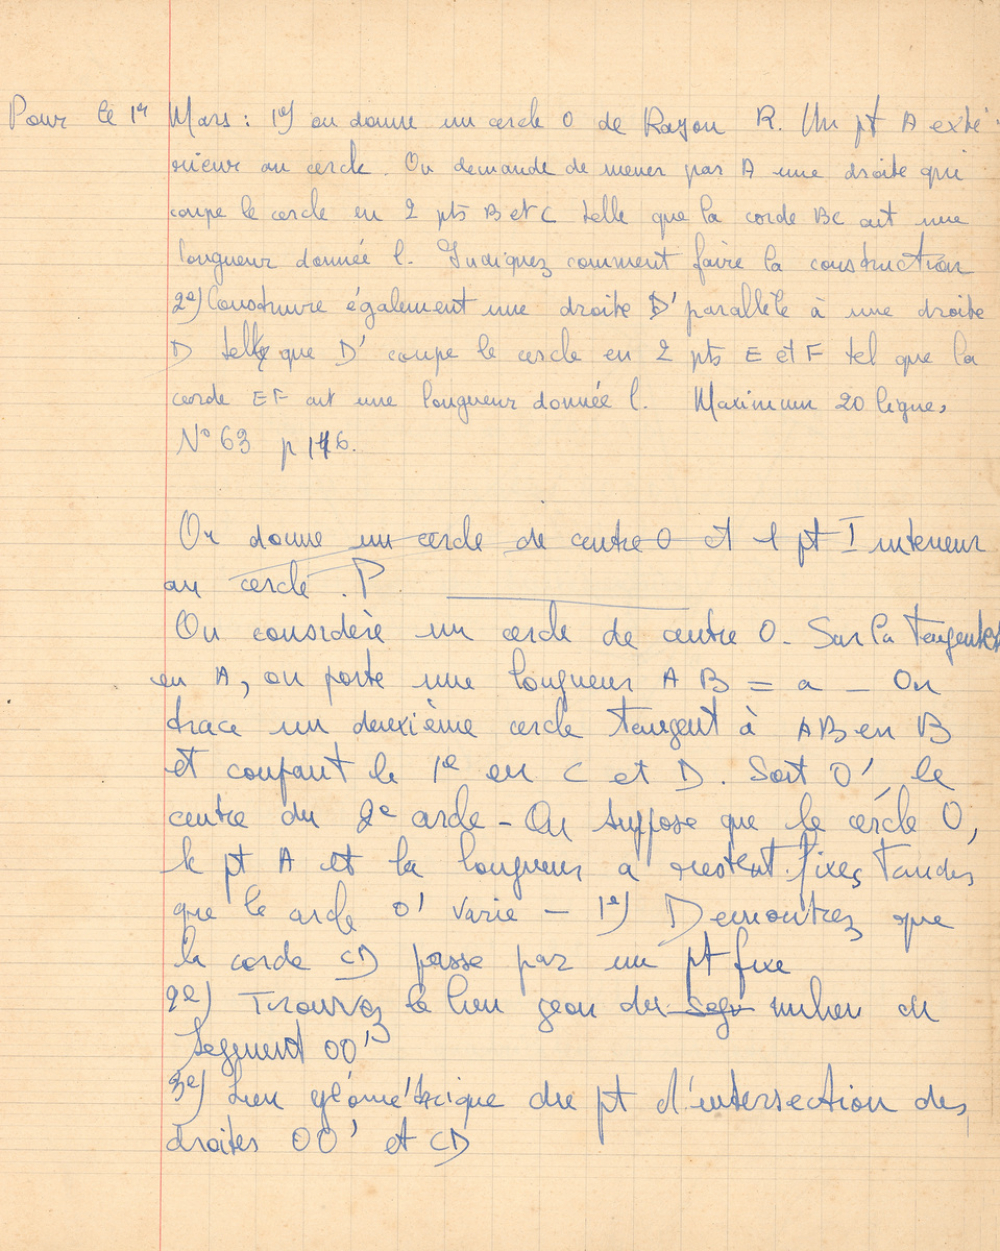 Pour le 1er Mars : 1e) on donne un cercle O de Rayon R. Un pt A exté
rieur au cercle. On demande de mener par A une droite qui
coupe le cercle en 2 pts B et C telle que la corde BC ait une
longueur donnée l. Indiquez comment faire la construction
2e) Construire également une droite D' parallèle à une droite
D telle que D' coupe le cercle en 2 pts E et F tel que la
corde EF ait une longueur donnée l. Maximum 20 lignes
N° 63 p 146.
On donne un cercle de centre O et 1 pt I interieur
au cercle. P
On considère un cercle de centre O - Sur la tangente
en A, on porte une longueur AB = a - On
trace un deuxième cercle tangent à AB en B
et coupant le 1e en C et D. Soit O', le
centre du 2e cercle - On suppose que le cercle O,
le pt A et la longueur a restent fixes tandis
que le cercle O' varie - 1e) Demontrez que
la corde CD passe par un pt fixe
2e) Trouvez le lieu geom du segr milieu du
segment OO'
3e) Lieu géométrique du pt d'intersection des
droites OO' et CD